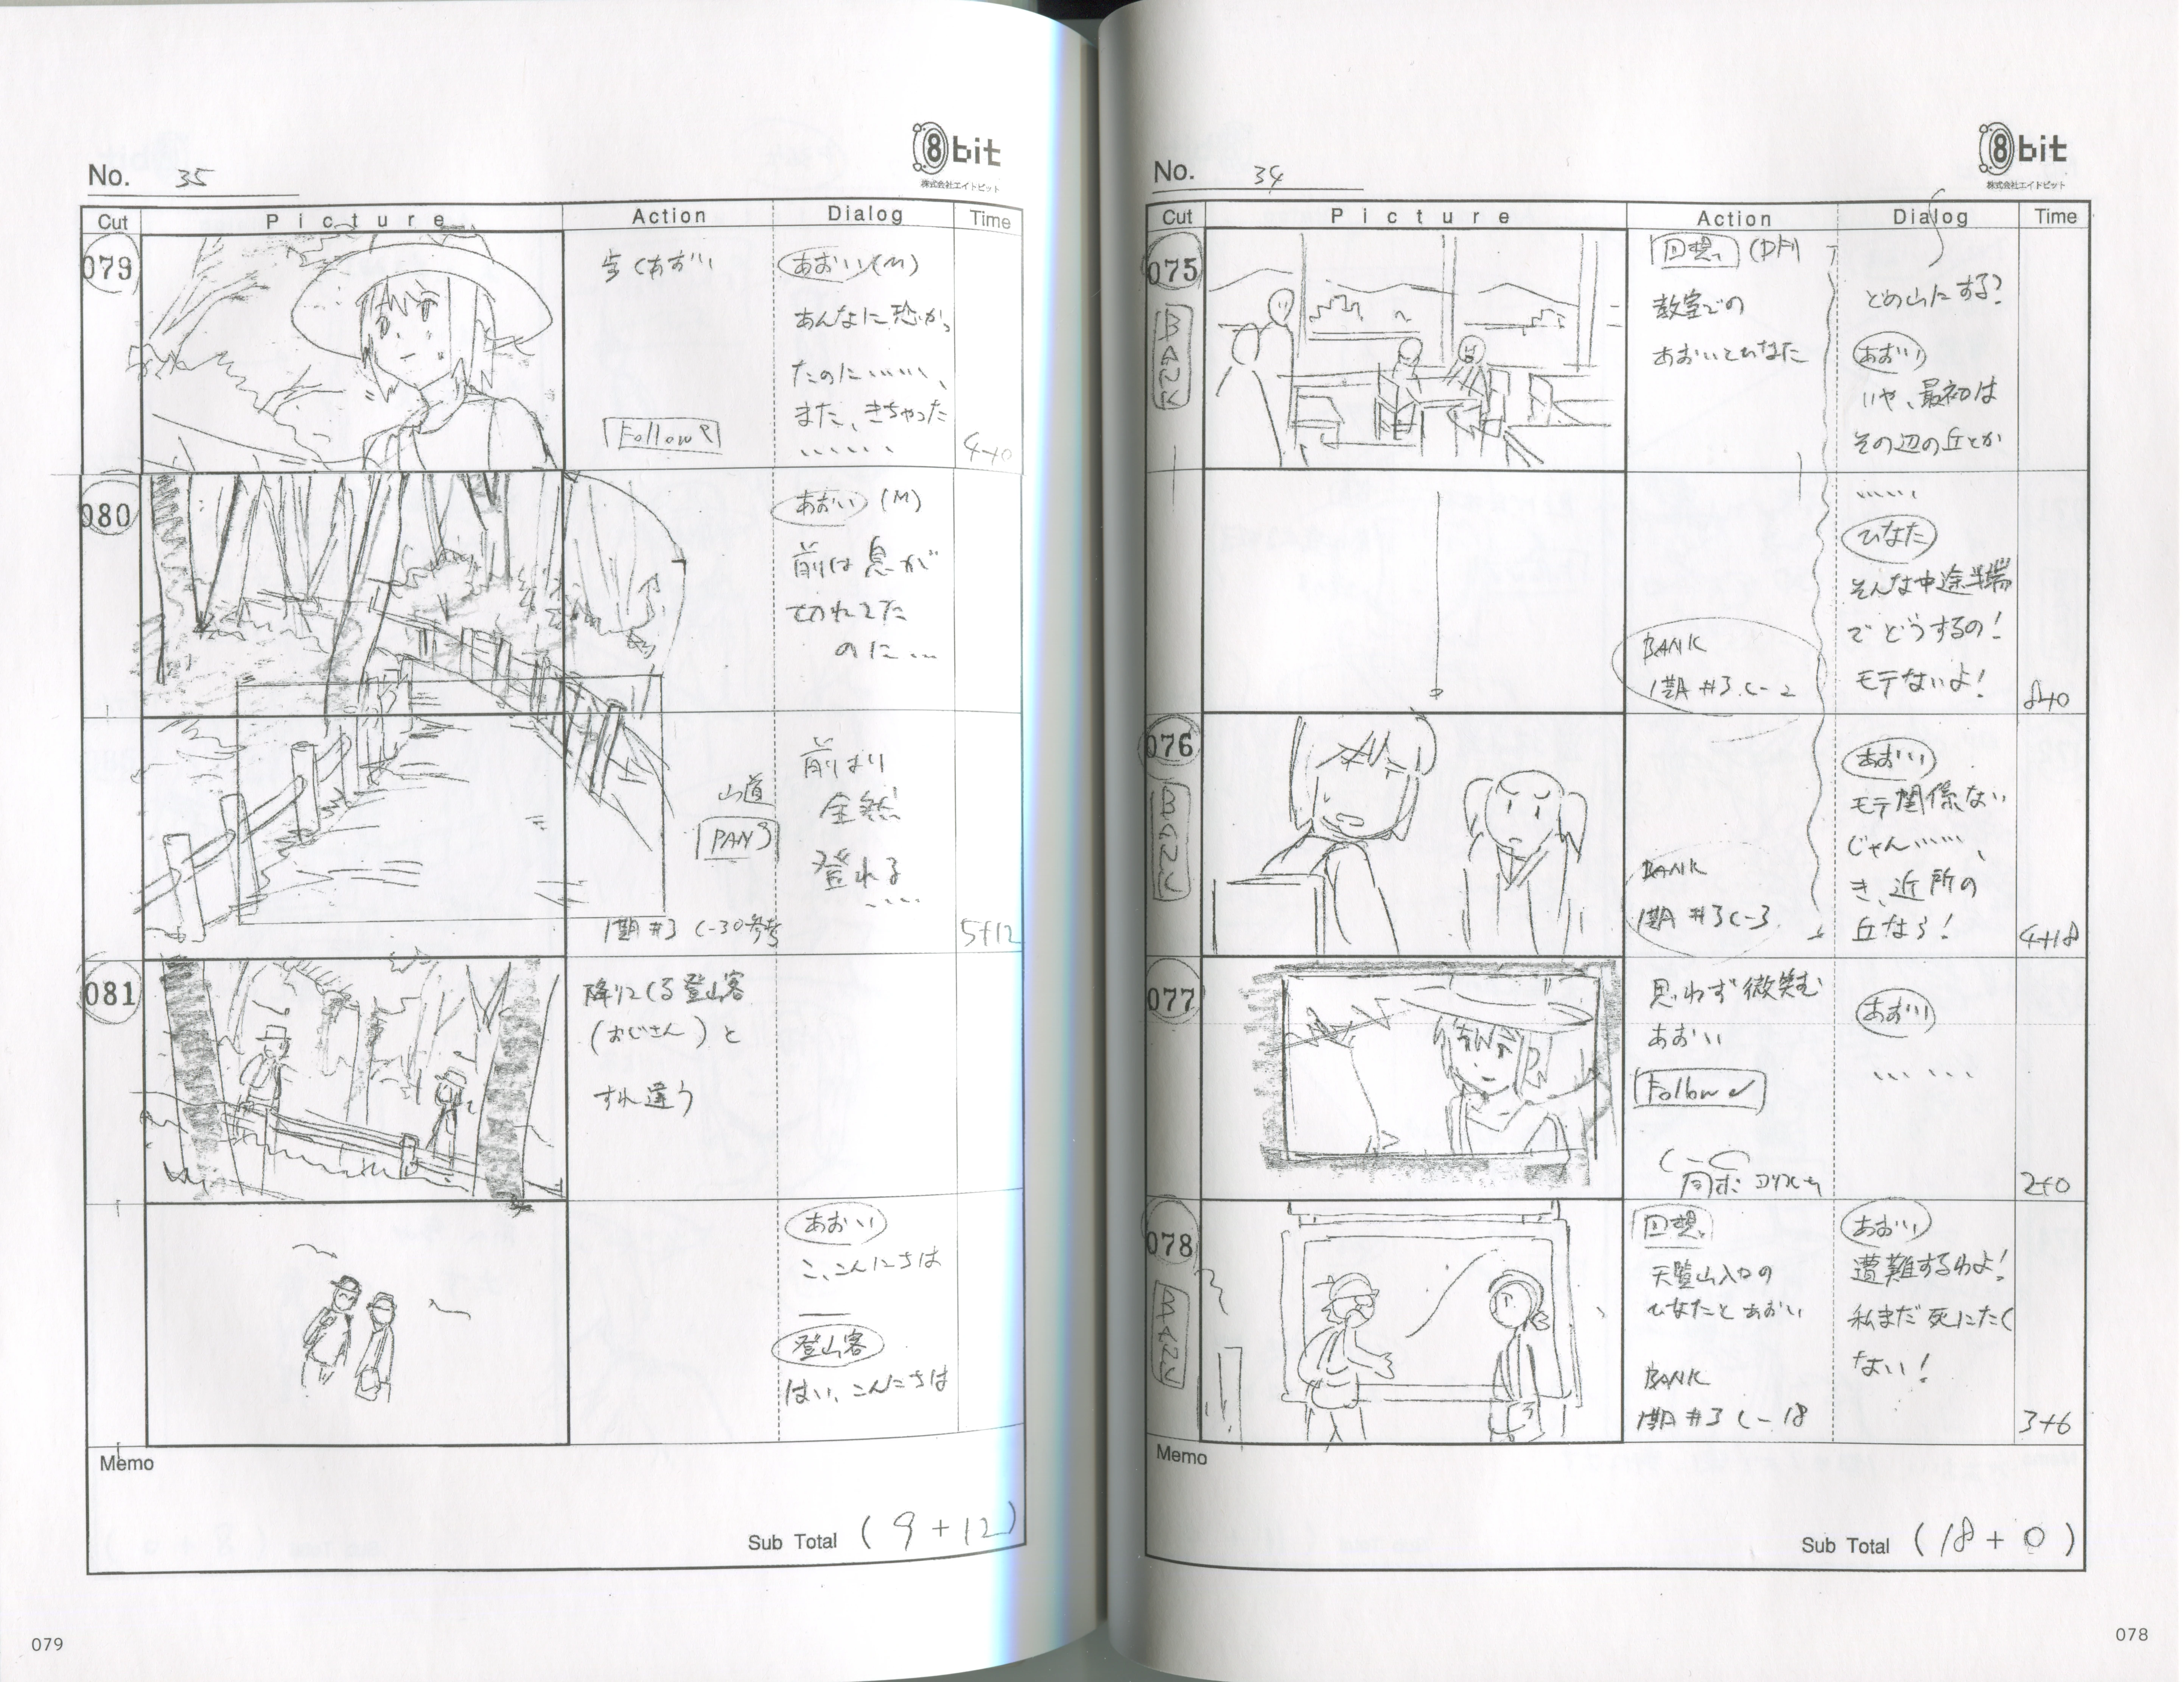 8bit
株式会社エイトビット
No. 34
Cut
Picture
Action
Dialog
Time
075
BANK
回想
教室での
あおいとひなた
BANK
1期 #3 C-2
どの山にする?
あおい
いや、最初は
その辺の丘とか
……
ひなた
そんな中途半端
でどうするの!
モテないよ!
8+0
076
BANK
BANK
1期 #3 C-3
あおい
モテ関係ない
じゃん……、
き、近所の
丘なら!
4+18
077
思わず微笑む
あおい
Follow
あおい
……
2+0
078
BANK
回想
天覧山入口の
ひなたとあおい
BANK
1期 #3 C-18
あおい
遭難するわよ!
私まだ死にたく
ない!
3+6
Memo
Sub Total (18+0)
078
8bit
株式会社エイトビット
No. 35
Cut
Picture
Action
Dialog
Time
079
歩くあおい
Follow
あおい(M)
あんなに恐かっ
たのに……、
また、きちゃった
……
4+0
080
山道
PAN
1期 #3 C-30参考
あおい (M)
前は息が
切れてた
のに…
前より
全然
登れる
……
5+12
081
降りてくる登山客
(おじさん)と
すれ違う
あおい
こ、こんにちは
登山客
はい、こんにちは
Memo
Sub Total (9+12)
079